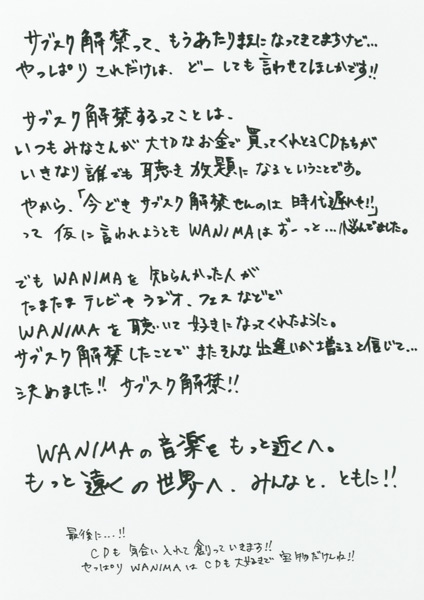 サブスク解禁って、もうあたりまえになってきてますけど...
やっぱり これだけは、どーしても言わせてほしかです!!
サブスク解禁するってことは、
いつもみなさんが 大切なお金で 買ってくれとるCDたちが
いきなり 誰でも 聴き放題に なるということです。
やから、「今どき サブスク解禁せんのは 時代遅れぞ!!」
って 仮に言われようとも WANIMAは ずーっと...悩んでました。
でも WANIMAを 知らんかった人が
たまたま テレビや ラジオ、フェス などで
WANIMAを 聴いて 好きになってくれたように。
サブスク解禁したことで またそんな 出逢いが 増えると信じて...
決めました!! サブスク解禁!!
WANIMAの音楽を もっと近くへ。
もっと 遠くの世界へ、みんなと、ともに!!
最後に...!!
CDも 気合い入れて 創っていきます!!
やっぱり WANIMAは CDも大好きで 宝物だけんね!!